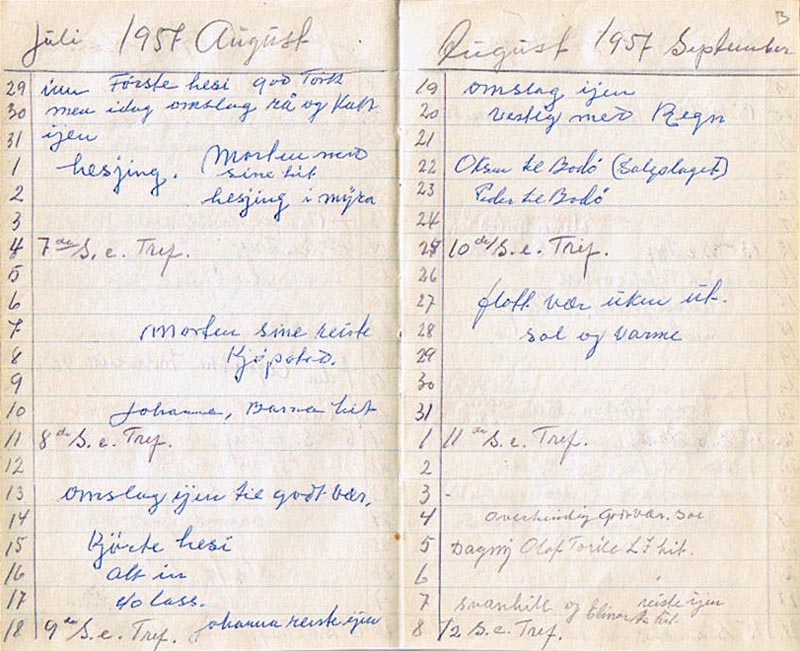 Juli 1957 August
29 inn Første hesi god Tørk
30 men idag omslag rå og kalt
31 ijen
1 hesjing. Morten med sine hit
2 hesjing i myra
3
4 7de S. e. Tref.
5
6
7 Morten sine reiste
8 Kjøpsted.
9
10 Johanna, Barna hit
11 8de S. e. Tref.
12
13 omslag ijen til godt vær,
14
15 Kjørte hesi
16 alt in
17 lass.
18 9de S. e. Tref. Johanna reiste ijen
3
August 1957 September
19 omslag ijen
20 vestlig med Regn
21
22 Oksen te Bodø (Salgslaget)
23 Peder te Bodø
24
25 10de S. e. Tref.
26
27 flott vær uken ut.
28 sol og varme
29
30
31
1 11de S. e. Tref.
2
3 -
4 overhendig Godvær. Sol
5 Dagny Olaf Torill hit.
6
7 Svanhill og reiste ijen
hit.
8 12 S. e. Tref.